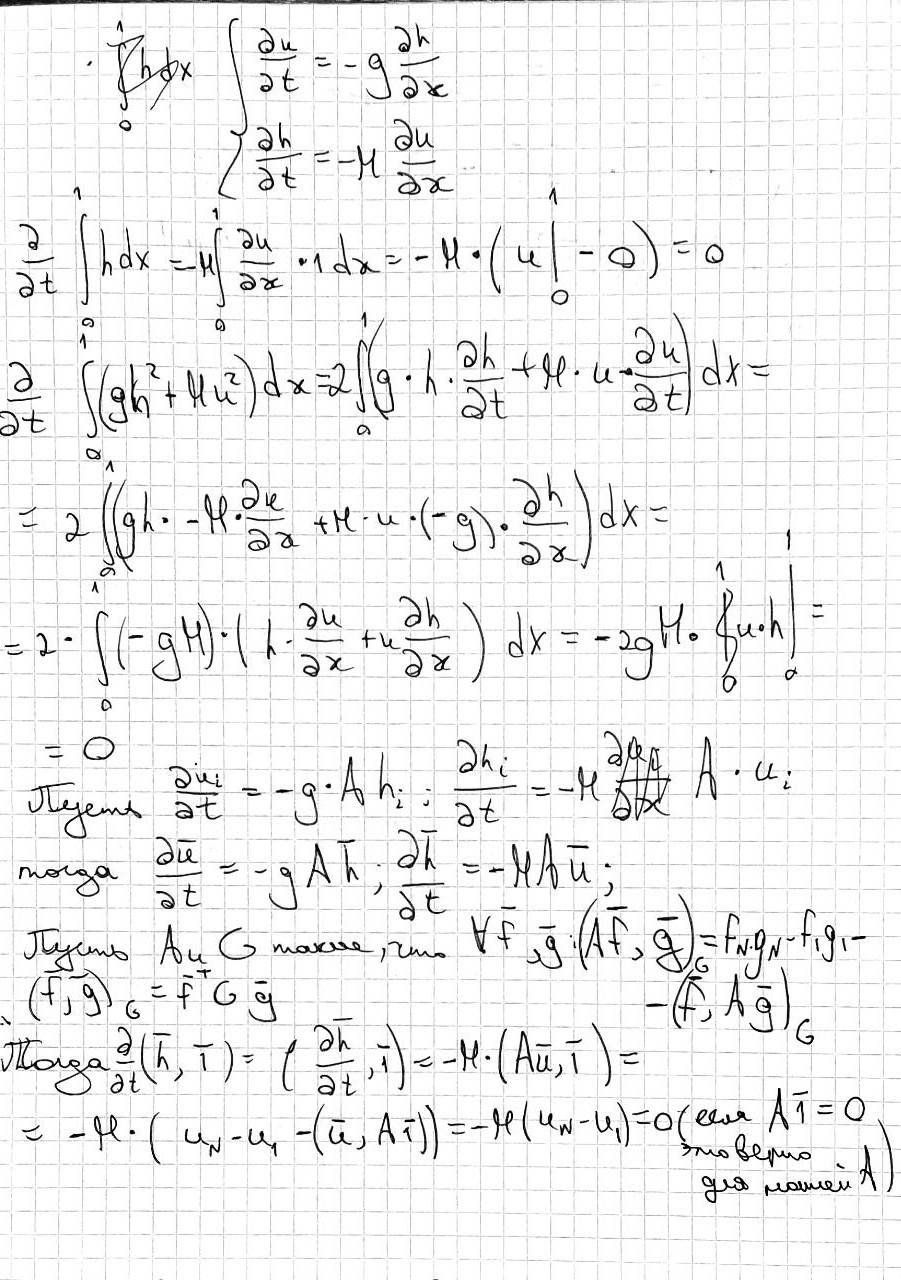 ∂u/∂t = -g ∂h/∂x
∂h/∂t = -H ∂u/∂x
∂/∂t ∫₀¹ h dx = -H ∫₀¹ ∂u/∂x · 1 dx = -H · (u|₀¹ - 0) = 0
∂/∂t ∫₀¹ (gh² + Hu²) dx = 2 ∫₀¹ (g · h · ∂h/∂t + H · u · ∂u/∂t) dx =
= 2 ∫₀¹ (gh · -H · ∂u/∂x + H · u · (-g) · ∂h/∂x) dx =
= 2 · ∫₀¹ (-gH) · (h · ∂u/∂x + u ∂h/∂x) dx = -2gH · u·h|₀¹ =
= 0
Пусть ∂uᵢ/∂t = -g · A hᵢ ; ∂hᵢ/∂t = -H A · uᵢ
тогда ∂ū/∂t = -g A h̄ ; ∂h̄/∂t = -H A ū ;
Пусть A и G такие, что ∀ f̄, ḡ : (A f̄, ḡ)_G = f_N g_N - f₁g₁ -
(f̄, ḡ)_G = f̄ᵀ G ḡ - (f̄, A ḡ)_G
Тогда ∂/∂t (h̄, 1̄) = (∂h̄/∂t, 1̄) = -H · (A ū, 1̄) =
= -H · (u_N - u₁ - (ū, A 1̄)) = -H (u_N - u₁) = 0 (если A 1̄ = 0
это верно
для нашей A)